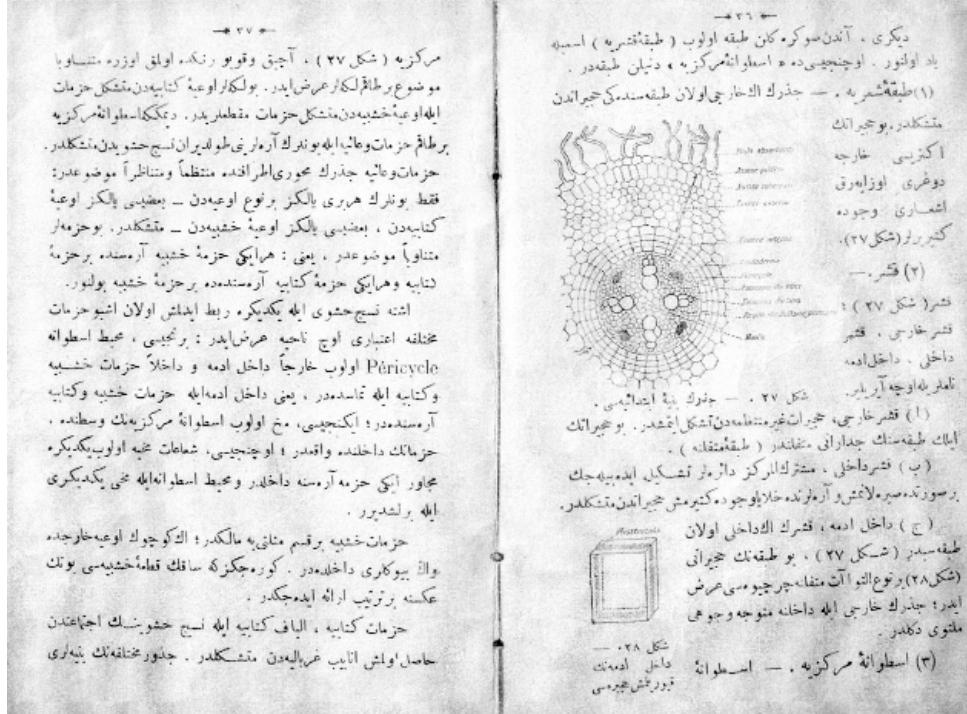 — ٣٦ —
دیگری ، آندن صوکره کلن طبقه اولوب ( طبقهٔ قشریه ) اسمیله
یاد اولنور . اوچنجیسی ده « اسطوانهٔ مرکزیه » دنیلن طبقه در .
(١) طبقهٔ شعریه . — جذرك اك خارجی اولان طبقه سنده کی حجیراتدن
متشکلدر . بو حجیراتك
اکثریسی خارجه
دوغری اوزایه‌رق
اشعاری وجوده
کتیررلر (شکل ٢٧).
(٢) قشر . —
قشر ( شکل ٢٧ ) :
قشر خارجی ، قشر
داخلی ، داخل ادمه
ناملریله اوچه آیریلیر.
Endoderme
Péricycle
Moelle
شکل ٢٧ . — جذرك بنیهٔ ابتدائیه‌سی .
( ا ) قشر خارجی ، حجیرات غیر منتظمه‌دن تشکل ایتمشدر . بو حجیراتك
ایلك طبقه‌سنك جدارانی متفلندر ( طبقهٔ متفلنه ) .
( ب ) قشر داخلی ، مشترك المرکز دائره‌لر تشکیل ایده‌بیله‌جك
بر صورتده صیره‌لانمش و آره‌لرنده خلایا وجوده کتیرمش حجیراتدن متشکلدر.
( ج ) داخل ادمه ، قشرك اك داخلی اولان
طبقه‌سیدر ( شکل ٢٧ ) ، بو طبقه‌نك حجیراتی
(شکل ٢٨) بر نوع التواآت متفلنه چرچیوه‌سی عرض
ایدر ؛ جذرك خارجی ایله داخلنه متوجه وجوهی
ملتوی دکلدر .
شکل ٢٨ . —
داخل ادمه‌نك
حجیره‌سی
(٣) اسطوانهٔ مرکزیه . — اسطوانهٔ
— ٣٧ —
مرکزیه ( شکل ٢٧ ) ، آچیق و قویو رنکده اولمق اوزره متساویاً
موضوع برطاقم لکه‌لر عرض ایدر . بو لکه‌لر اوعیهٔ کتابیه‌دن متشکل حزمات
ایله اوعیهٔ خشبیه‌دن متشکل حزمات مقطعلریدر . دیمك‌که اسطوانهٔ مرکزیه
برطاقم حزمات وعائیه ایله بونلرك آره‌لرینی طولدیران نسج حشویدن متشکلدر.
حزمات وعائیه جذرك محوری اطرافنده منتظماً و متناظراً موضوعدر :
فقط بونلرك هر بری یالکز بر نوع اوعیه‌دن — بعضیسی یالکز اوعیهٔ
کتابیه‌دن ، بعضیسی یالکز اوعیهٔ خشبیه‌دن — متشکلدر . بو حزمه‌لر
متناوباً موضوعدر ، یعنی : هر ایکی حزمهٔ خشبیه آره‌سنده بر حزمهٔ
کتابیه و هر ایکی حزمهٔ کتابیه آره‌سنده‌ده بر حزمهٔ خشبیه بولنور.
اشته نسج حشوی ایله یکدیگره ربط ایدلمش اولان اشبو حزمات
مختلفه اعتباری اوچ ناحیه عرض ایدر : برنجیسی ، محیط اسطوانه
Péricycle اولوب خارجاً داخل ادمه و داخلاً حزمات خشبیه
و کتابیه ایله تماسده‌در ، یعنی داخل ادمه ایله حزمات خشبیه و کتابیه
آره‌سنده‌در ؛ ایکنجیسی ، مخ اولوب اسطوانهٔ مرکزیه‌نك وسطنده ،
حزماتك داخلنده واقعدر ؛ اوچنجیسی ، شعاعات مخیه اولوب یکدیگره
مجاور ایکی حزمه آره‌سنه داخلدر و محیط اسطوانه ایله مخی یکدیگری
ایله برلشدیرر .
حزمات خشبیه بر قسم مثلثی‌یه مالکدر ؛ اك کوچوك اوعیه خارجده
و اك بیوکلری داخلده‌در . کوره‌جکز که ساقك قطعهٔ خشبیه‌سی بونك
عکسنه بر ترتیب ارائه ایده‌جکدر .
حزمات کتابیه ، الیاف کتابیه ایله نسج حشوینك اجتماعندن
حاصل اولمش انابیب غربالیه‌دن متشکلدر . جذور مختلفه‌نك بنیه‌لری